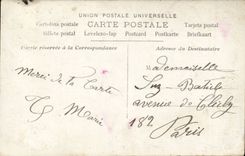 UNION POSTALE UNIVERSELLE
CARTE POSTALE
Tarjeta postal
Postkarte
Briefkaart
Billete postal
Levelezo-lap
Postcard
Partie réservée à la Correspondance
Adresse du Destinataire
Merci de ta Carte
Marie
Mademoiselle
Suz
avenue de Clichy
182
Paris